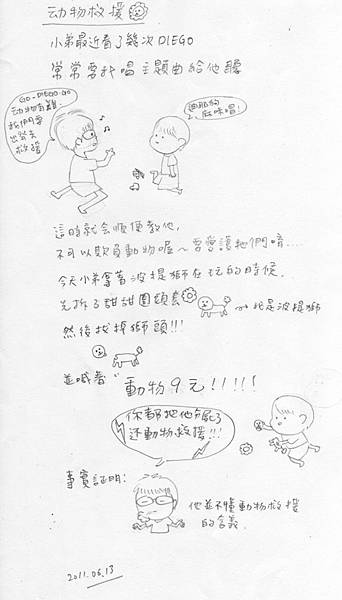 动物救援
小弟最近看了幾次DIEGO
常常要我唱主題曲給他聽
GO-DIEGO-GO
动物有難
我們要
出發去
救援
過船的
麻咪唱!
這時就会順便教他,
不可以欺負動物喔~要愛護牠們唷…
今天小弟拿著波提獅在玩的時候,
先拆了甜甜圈頭套
我是波提獅
然後找掉獅頭!!!
並喊着"動物9元!!!!!
你都把他分屍了
还動物救援!!!
事實証明:
他並不懂動物救援
的含義.
2011.06.13